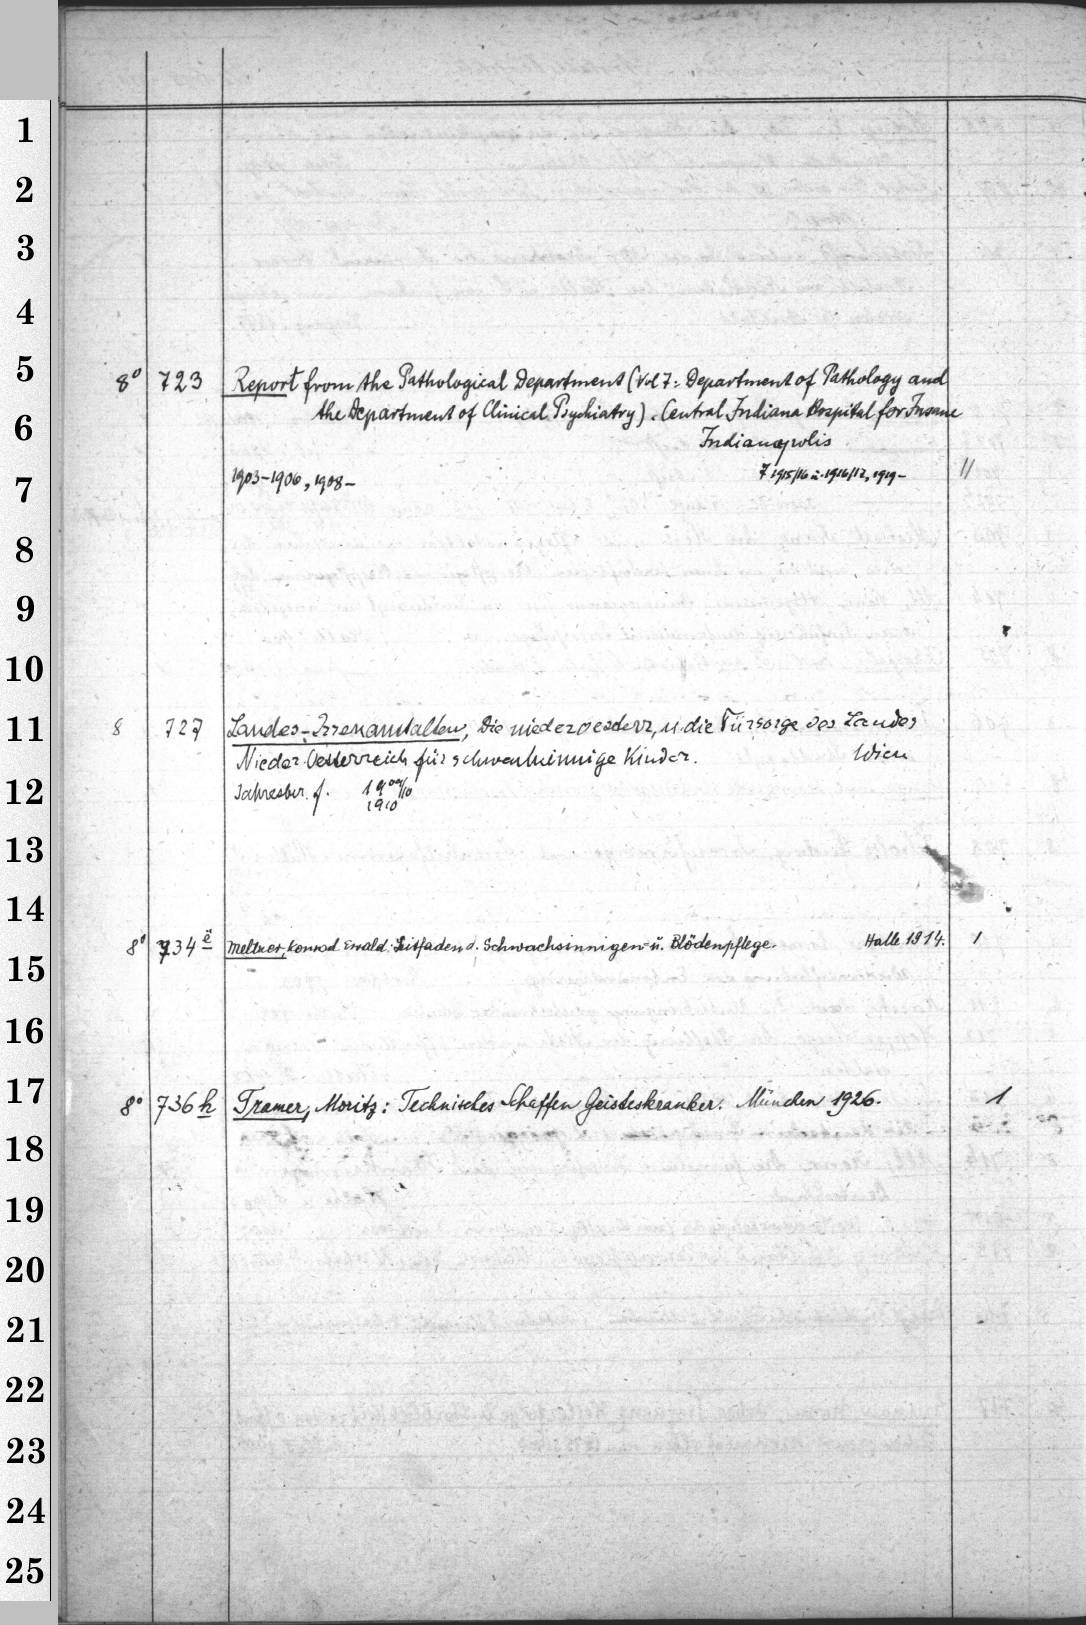 1
2
3
4
5
8° 723 Report from the Pathological Department (Vol 7: Department of Pathology and
6
the Department of Clinical Psychiatry). Central Indiana Hospital for Insane
Indianapolis
7
1903-1906, 1908- 7 1915/16 u. 1916/17, 1919- //
8
9
10
11
8 727 Landes-Irrenanstalten, Die niederoesterr, u. die Fürsorge des Landes
Nieder-Oesterreich für schwachsinnige Kinder. Wien
12
Jahresber. f. 1909/10
1910
13
14
8° 734 ë Meltzer, Konrad Ewald: Leitfaden d. Schwachsinnigen- u. Blödenpflege. Halle 1914. 1
15
16
17
8° 736 h Tramer, Moritz: Technisches Schaffen Geisteskranker. München 1926. 1
18
19
20
21
22
23
24
25